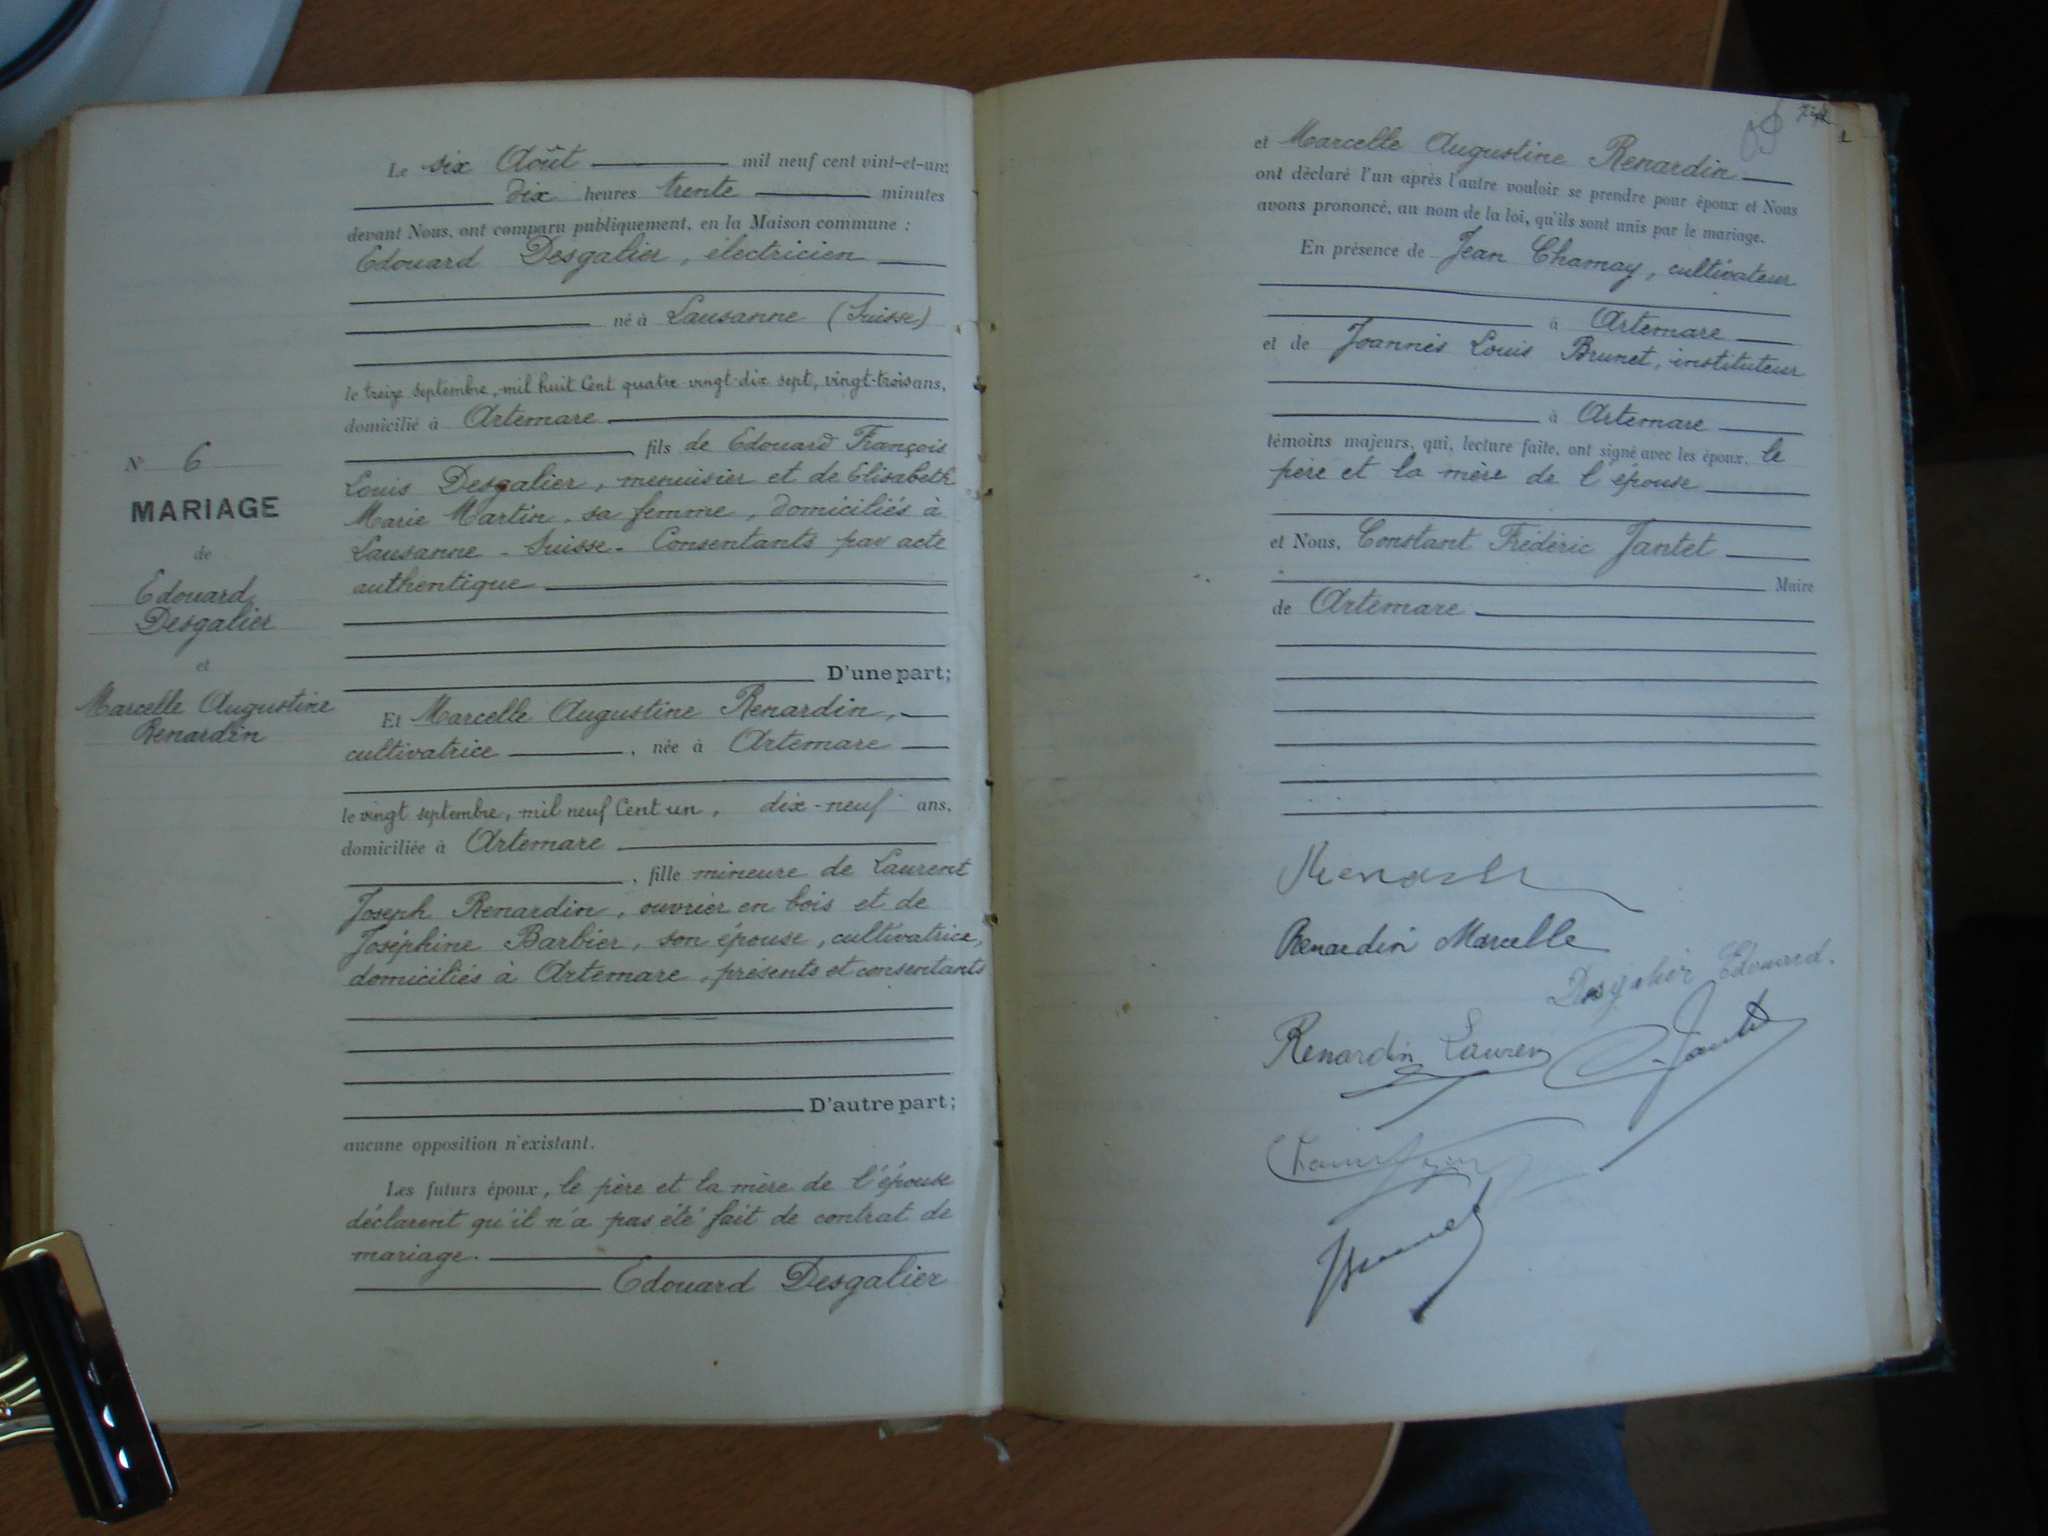 Nº 6
MARIAGE
de
Edouard
Desgalier
et
Marcelle Augustine
Renardin
Le six Août mil neuf cent vint-et-un:
dix heures trente minutes
devant Nous, ont comparu publiquement, en la Maison commune :
Edouard Desgalier, électricien
né à Lausanne (Suisse)
le treize septembre, mil huit Cent quatre-vingt-dix sept, vingt-trois ans,
domicilié à Artemare
fils de Edouard François
Louis Desgalier, menuisier et de Elisabeth
Marie Martin, sa femme, domiciliés à
Lausanne - Suisse - Consentants par acte
authentique
D'une part;
Et Marcelle Augustine Renardin,
cultivatrice, née à Artemare
le vingt septembre, mil neuf Cent un, dix-neuf ans,
domiciliée à Artemare
, fille mineure de Laurent
Joseph Renardin, ouvrier en bois et de
Joséphine Barbier, son épouse, cultivatrice,
domiciliés à Artemare, présents et consentants
D'autre part;
aucune opposition n'existant.
Les futurs époux, le père et la mère de l'épouse
déclarent qu'il n'a pas été fait de contrat de
mariage.
Edouard Desgalier
et Marcelle Augustine Renardin
ont déclaré l'un après l'autre vouloir se prendre pour époux et Nous
avons prononcé, au nom de la loi, qu'ils sont unis par le mariage.
En présence de Jean Chamay, cultivateur
à Artemare
et de Joannès Louis Brunet, instituteur
à Artemare
témoins majeurs, qui, lecture faite, ont signé avec les époux, le
père et la mère de l'épouse
et Nous, Constant Frédéric Jantet
Maire
de Artemare
Renardin Marcelle
Desgalier Edouard.
Renardin Laurent
C. Jantet
Brunet